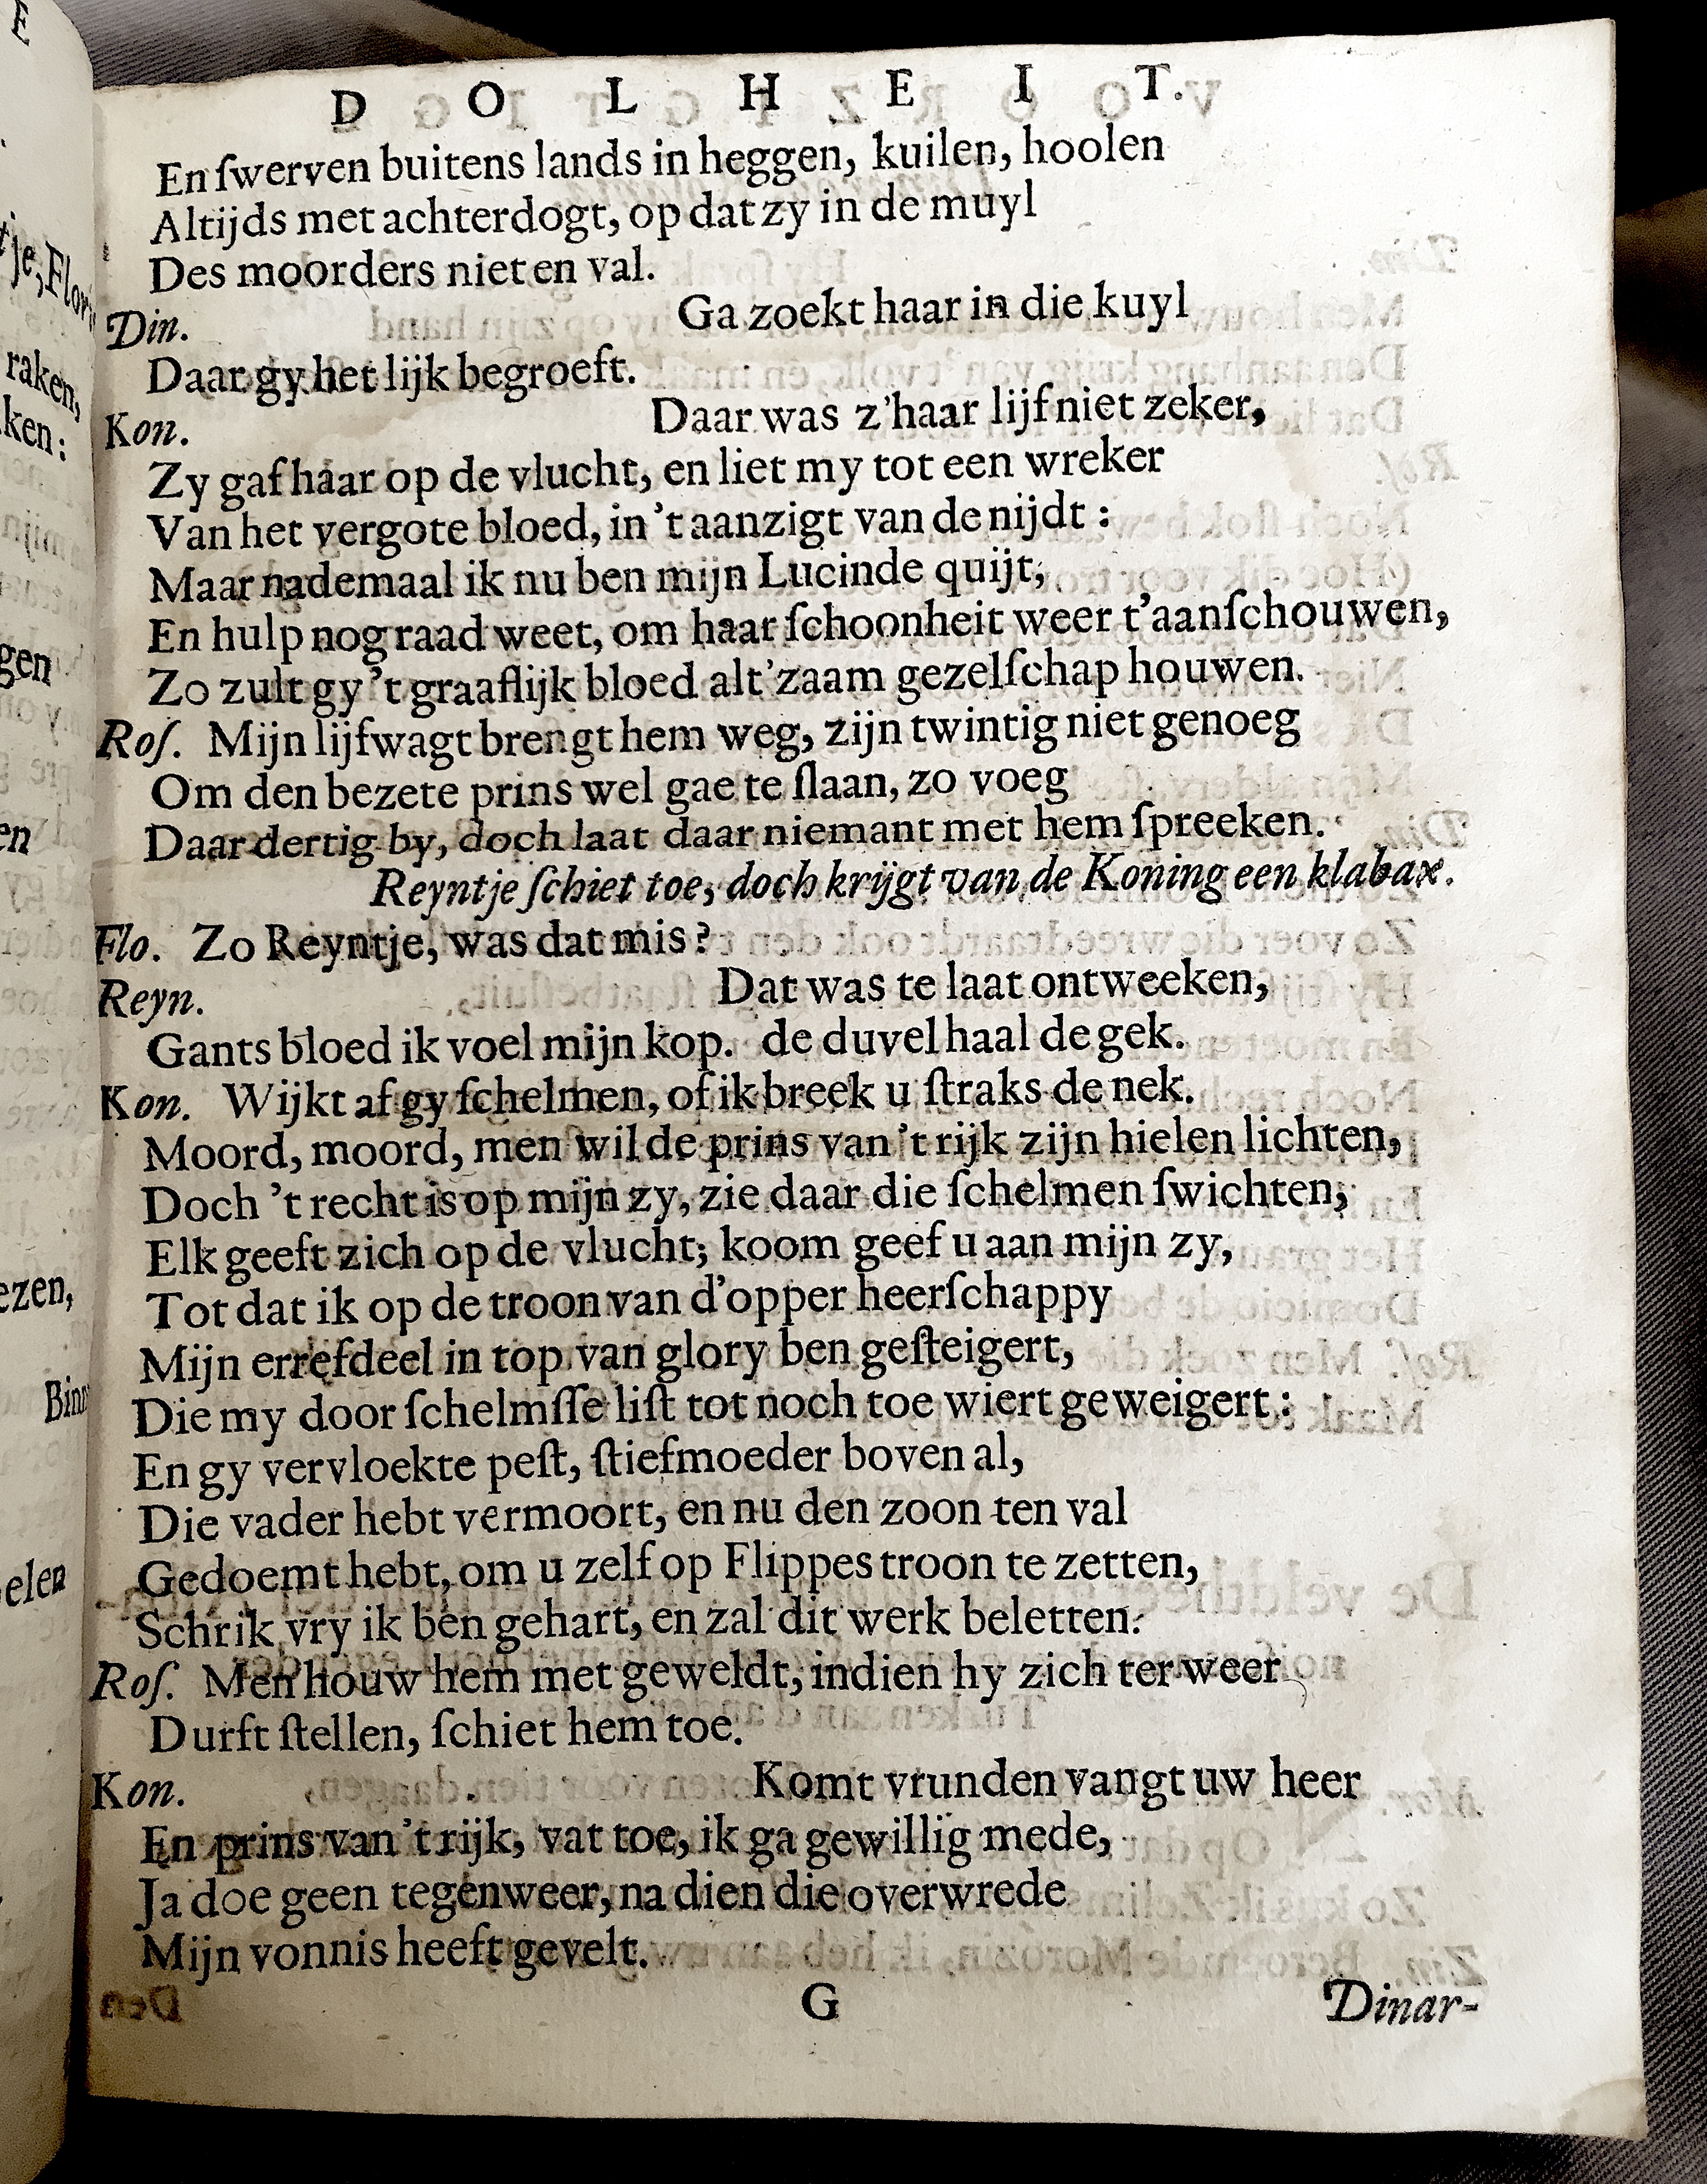 D O L H E I T.
En ſwerven buitens lands in heggen, kuilen, hoolen
Altijds met achterdogt, op dat zy in de muyl
Des moorders niet en val.
Din. Ga zoekt haar in die kuyl
Daar gy het lijk begroeft.
Kon. Daar was z'haar lijf niet zeker,
Zy gaf haar op de vlucht, en liet my tot een wreker
Van het vergote bloed, in 't aanzigt van de nijdt :
Maar nademaal ik nu ben mijn Lucinde quijt,
En hulp nog raad weet, om haar ſchoonheit weer t'aanſchouwen,
Zo zult gy 't graaflijk bloed alt'zaam gezelſchap houwen.
Roſ. Mijn lijfwagt brengt hem weg, zijn twintig niet genoeg
Om den bezete prins wel gae te ſlaan, zo voeg
Daar dertig by, doch laat daar niemant met hem ſpreeken.
Reyntje ſchiet toe, doch krijgt van de Koning een klabax.
Flo. Zo Reyntje, was dat mis?
Reyn. Dat was te laat ontweeken,
Gants bloed ik voel mijn kop. de duvel haal de gek.
Kon. Wijkt af gy ſchelmen, of ik breek u ſtraks de nek.
Moord, moord, men wil de prins van 't rijk zijn hielen lichten,
Doch 't recht is op mijn zy, zie daar die ſchelmen ſwichten,
Elk geeft zich op de vlucht; koom geef u aan mijn zy,
Tot dat ik op de troon van d'opper heerſchappy
Mijn errefdeel in top van glory ben geſteigert,
Die my door ſchelmſſe liſt tot noch toe wiert geweigert :
En gy vervloekte peſt, ſtiefmoeder boven al,
Die vader hebt vermoort, en nu den zoon ten val
Gedoemt hebt, om u zelf op Flippes troon te zetten,
Schrik vry ik ben gehart, en zal dit werk beletten.
Roſ. Men houw hem met geweldt, indien hy zich ter weer
Durft ſtellen, ſchiet hem toe.
Kon. Komt vrunden vangt uw heer
En prins van 't rijk, vat toe, ik ga gewillig mede,
Ja doe geen tegenweer, na dien die overwrede
Mijn vonnis heeft gevelt.
G Dinar-